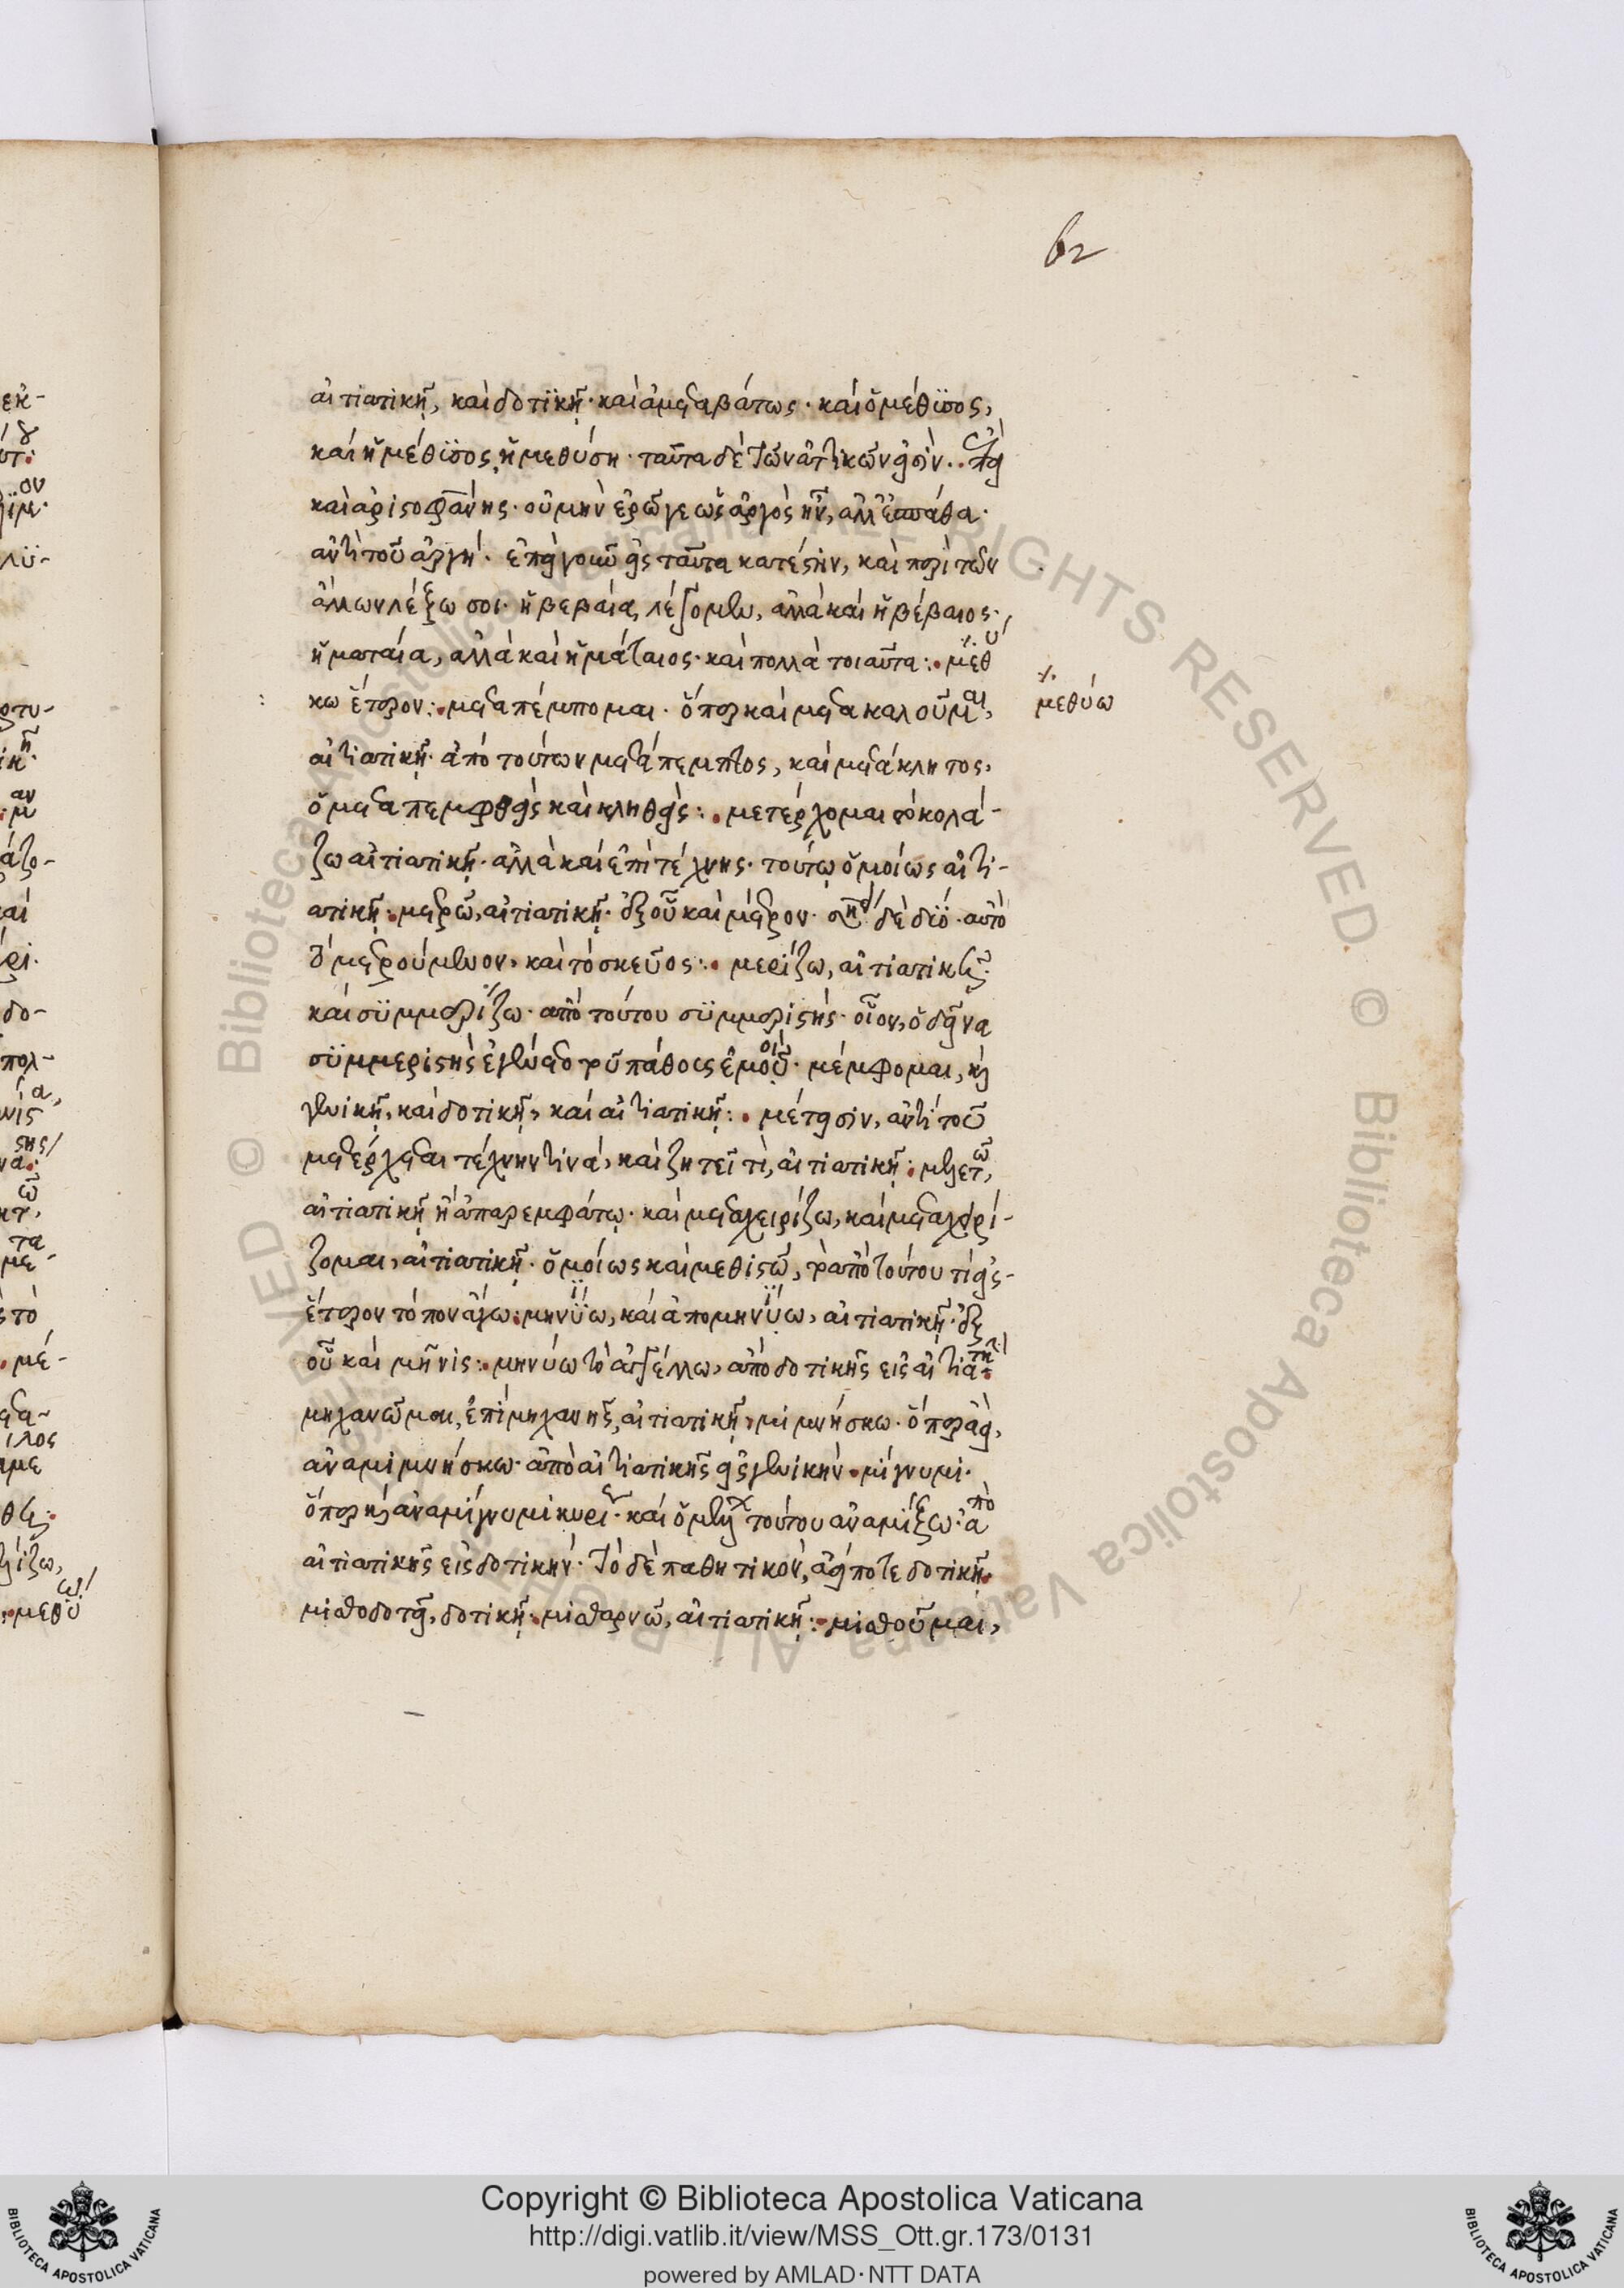 62
αἰτιατικῇ, καὶ δοτϊκῇ· καὶ ἀμεταβάτως· καὶ ὁ μέθϋσος,
καὶ ἡ μέθϋσος, ἡ μεθύση· ταῦτα δὲ τῶν ἀττικῶν εἰσὶν·
καὶ ἀριστοφάνης· οὐ μὴν ἐρῶ γε ὡς ἀργὸς ἦν, ἀλλ' ἐσπάθα·
ἀντὶ τοῦ ἀργή· ἐπεὶ γοῦν εἰς ταῦτα κατέστην, καὶ περὶ τῶν
ἄλλων λέξω σοι· ἡ βεβαία λέγομεν, ἀλλὰ καὶ ἡ βέβαιος·
ἡ ματαία, ἀλλὰ καὶ ἡ μάταιος· καὶ πολλὰ τοιαῦτα:· μεθύ
σκω ἕτερον:· μεταπέμπομαι· ὅπερ καὶ μετακαλοῦμαι,
μεθύω
αἰτιατικῇ· ἀπὸ τούτων μετάπεμπτος, καὶ μετάκλητος,
ὁ μεταπεμφθεὶς καὶ κληθείς:· μετέρχομαι τὸ κολά-
ζω αἰτιατικῇ· ἀλλὰ καὶ ἐπὶ τέχνης· τούτῳ ὁμοίως αἰτι-
ατικῇ:· μετρῶ, αἰτιατικῇ· ἐξ οὗ καὶ μέτρον· δὲ δϋό· αὐτὸ
τὸ μετρούμενον, καὶ τὸ σκεῦος:· μερίζω, αἰτιατικῇ·
καὶ σϋμμερίζω· ἀπὸ τούτου σϋμμεριστής· οἷον, ὁ δεῖνα
σϋμμεριστὴς ἐγένετο τοῦ πάθους ἐμοῦ· μέμφομαι, καὶ
γενικῇ, καὶ δοτικῇ, καὶ αἰτιατικῇ:· μέτεισιν, ἀντὶ τοῦ
μετέρχεται τέχνην τινά, καὶ ζητεῖ τὶ, αἰτιατικῇ:· μελετῶ,
αἰτιατικῇ ἢ ἀπαρεμφάτῳ· καὶ μεταχειρίζω, καὶ μεταχειρί-
ζομαι, αἰτιατικῇ· ὁμοίως καὶ μεθιστῶ, τὸ ἀπὸ τούτου τί εἰς
ἕτερον τόπον ἄγω:· μηνΰω, καὶ ἀπομηνΰω, αἰτιατικῇ· ἐξ
οὗ καὶ μῆνις:· μηνύω τὸ ἀγγέλλω, ἀπὸ δοτικῆς εἰς αἰτιατι:·
μηχανῶμαι, ἐπιμηχανῆς, αἰτιατικῇ, μιμνήσκω· ὅπερ
ἀναμιμνήσκω· ἀπὸ αἰτιατικῆς εἰς γενικήν· μίγνυμι·
ὅπερ καὶ ἀναμίγνυμι καὶ ὁ τούτου ἀναμίξω· ἀπὸ
αἰτιατικῆς εἰς δοτικήν· τὸ δὲ παθητικὸν, ἀείποτε δοτικῇ·
μισθοδοτεῖ, δοτικῇ:· μισθαρνῶ, αἰτιατικῇ:· μισθοῦμαι,
Copyright © Biblioteca Apostolica Vaticana
http://digi.vatlib.it/view/MSS_Ott.gr.173/0131
powered by AMLAD·NTT DATA